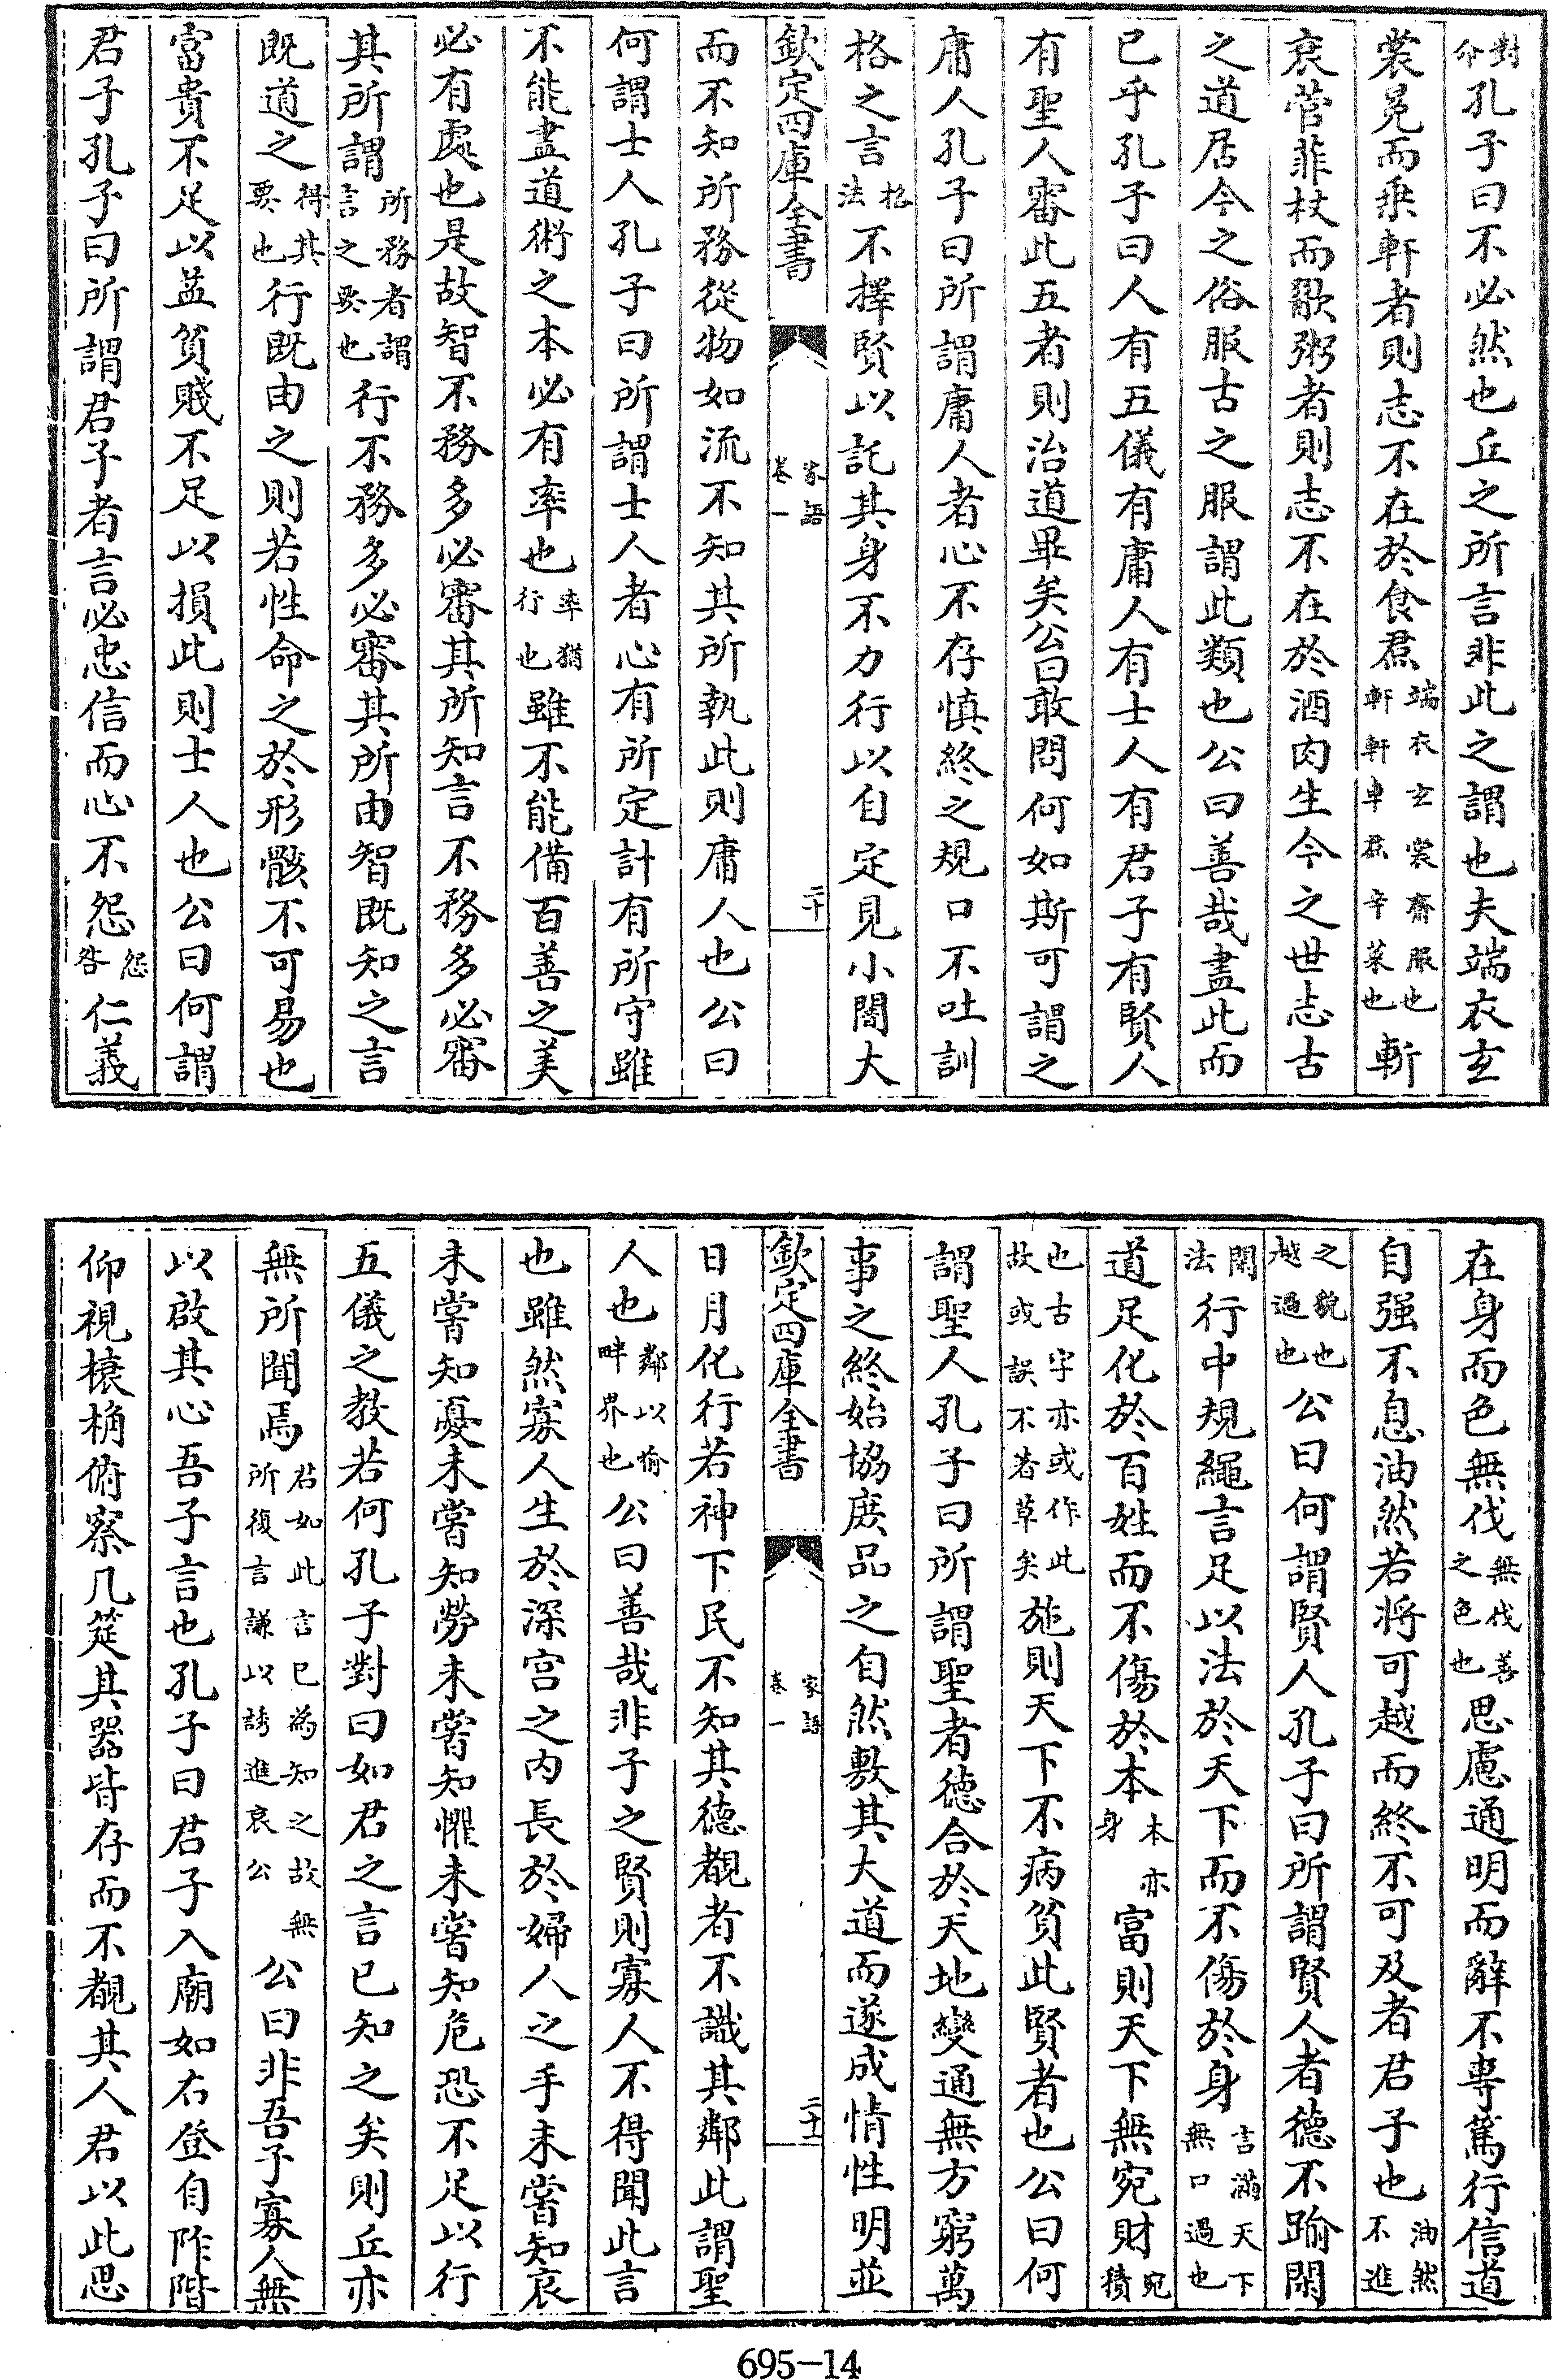 對分孔子曰不必然也丘之所言非此之謂也夫端衣玄
裳冕而乗軒者則志不在於食焄端衣玄裳齋服也軒軒車焄辛菜也斬
衰菅菲杖而歠粥者則志不在於酒肉生今之世志古
之道居今之俗服古之服謂此類也公曰善哉盡此而
已乎孔子曰人有五儀有庸人有士人有君子有賢人
有聖人審此五者則治道畢矣公曰敢問何如斯可謂之
庸人孔子曰所謂庸人者心不存慎終之規口不吐訓
格之言格法不擇賢以託其身不力行以自定見小闇大
欽定四庫全書 家語卷一 二十
而不知所務從物如流不知其所執此則庸人也公曰
何謂士人孔子曰所謂士人者心有所定計有所守雖
不能盡道術之本必有率也率猶行也雖不能備百善之美
必有處也是故智不務多必審其所知言不務多必審
其所謂所務者謂言之要也行不務多必審其所由智既知之言
既道之得其要也行既由之則若性命之於形骸不可易也
富貴不足以益貧賤不足以損此則士人也公曰何謂
君子孔子曰所謂君子者言必忠信而心不怨怨咎仁義
在身而色無伐無伐善之色也思慮通明而辭不專篤行信道
自强不息油然若将可越而終不可及者君子也油然不進
之貌也越過也公曰何謂賢人孔子曰所謂賢人者德不踰閑
閑法行中規繩言足以法於天下而不傷於身言滿天下無口過也
道足化於百姓而不傷於本本亦身富則天下無宛財宛積
也古字亦或作此故或誤不著草矣施則天下不病貧此賢者也公曰何
謂聖人孔子曰所謂聖者德合於天地變通無方窮萬
事之終始協庶品之自然敷其大道而遂成情性明並
欽定四庫全書 家語卷一 二十一
日月化行若神下民不知其德覩者不識其鄰此謂聖
人也鄰以喻畔界也公曰善哉非子之賢則寡人不得聞此言
也雖然寡人生於深宫之内長於婦人之手未嘗知哀
未嘗知憂未嘗知勞未嘗知懼未嘗知危恐不足以行
五儀之教若何孔子對曰如君之言已知之矣則丘亦
無所聞焉君如此言已為知之故無所復言謙以誘進哀公公曰非吾子寡人無
以啟其心吾子言也孔子曰君子入廟如右登自阼階
仰視榱桷俯察几筵其器皆存而不覩其人君以此思
695-14